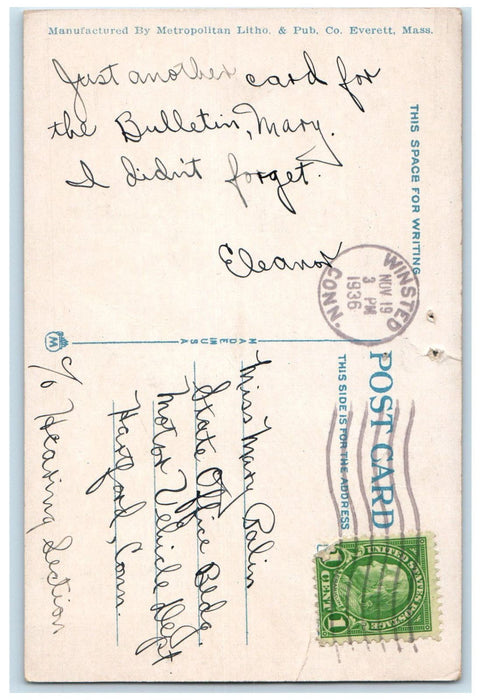 Manufactured By Metropolitan Litho. & Pub. Co. Everett, Mass.
Just another card for
the Bulletin, Mary.
I didn't forget.
Eleanor
THIS SPACE FOR WRITING
WINSTED
NOV 19
3 PM
1936
CONN.
MADE IN USA
M
POST CARD
THIS SIDE IS FOR THE ADDRESS
Miss Mary
State Office Bldg.
Motor Vehicle Dept
Hartford, Conn.
c/o Hearing Section
UNITED STATES POSTAGE
1 CENT 1